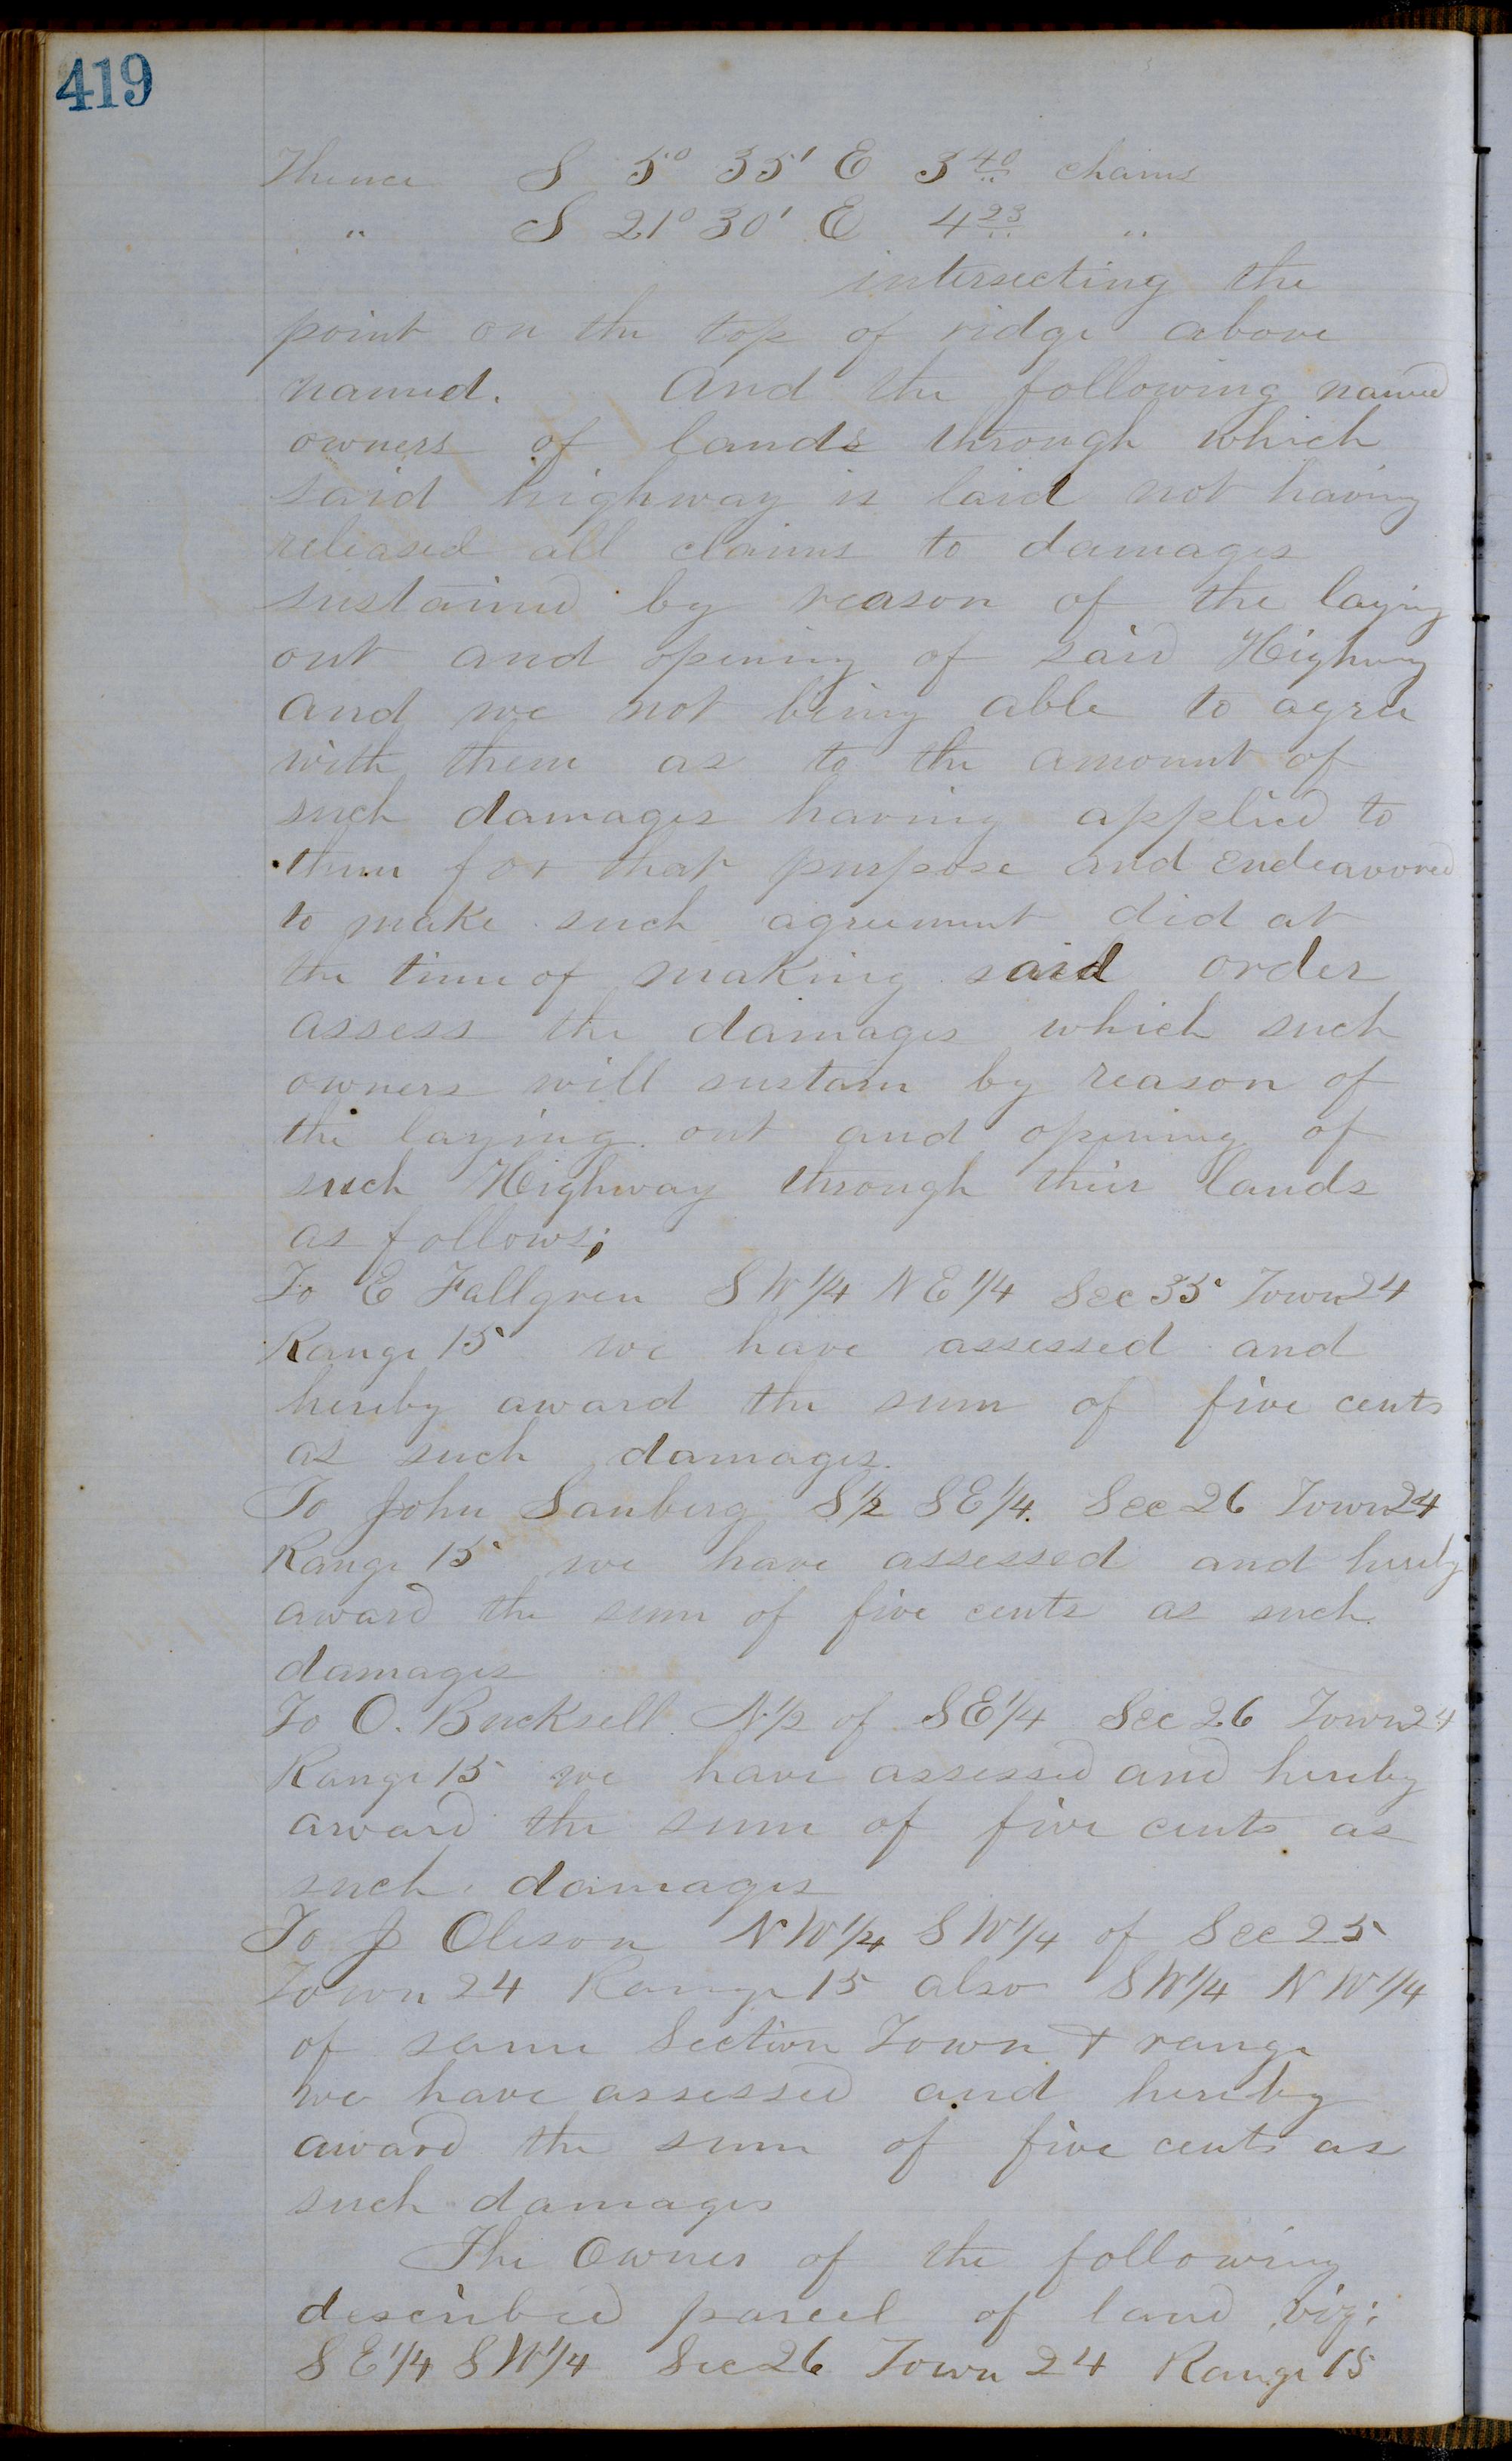 419
Thence S 5° 35' E 3 40 chains
" S 21° 30' E 4 23 "
intersecting the
point on the top of ridge above
named. And the following named
owners of lands through which
said highway is laid not having
released all claims to damages
sustained by reason of the laying
out and opening of said Highway
and we not being able to agree
with them as to the amount of
such damages having applied to
them for that purpose and endeavored
to make such agreement did at
the time of making said order
assess the damages which such
owners will sustain by reason of
the laying out and opening of
such Highway through their lands
as follows;
To E Fallgren S W 1/4 N E 1/4 Sec 35 Town 24
Range 15 we have assessed and
hereby award the sum of five cents
as such damages.
To John Sanberg S 1/2 S E 1/4. Sec 26 Town 24
Range 15 we have assessed and hereby
award the sum of five cents as such
damages
To O. Bucksell N 1/2 of S E 1/4 Sec 26 Town 24
Range 15 we have assessed and hereby
award the sum of five cents as
such damages
To J Oleson N W 1/4 S W 1/4 of Sec 25
Town 24 Range 15 also S W 1/4 N W 1/4
of same Section Town & range
we have assessed and hereby
award the sum of five cents as
such damages
The Owner of the following
described parcel of land viz:
S E 1/4 S W 1/4 Sec 26 Town 24 Range 15